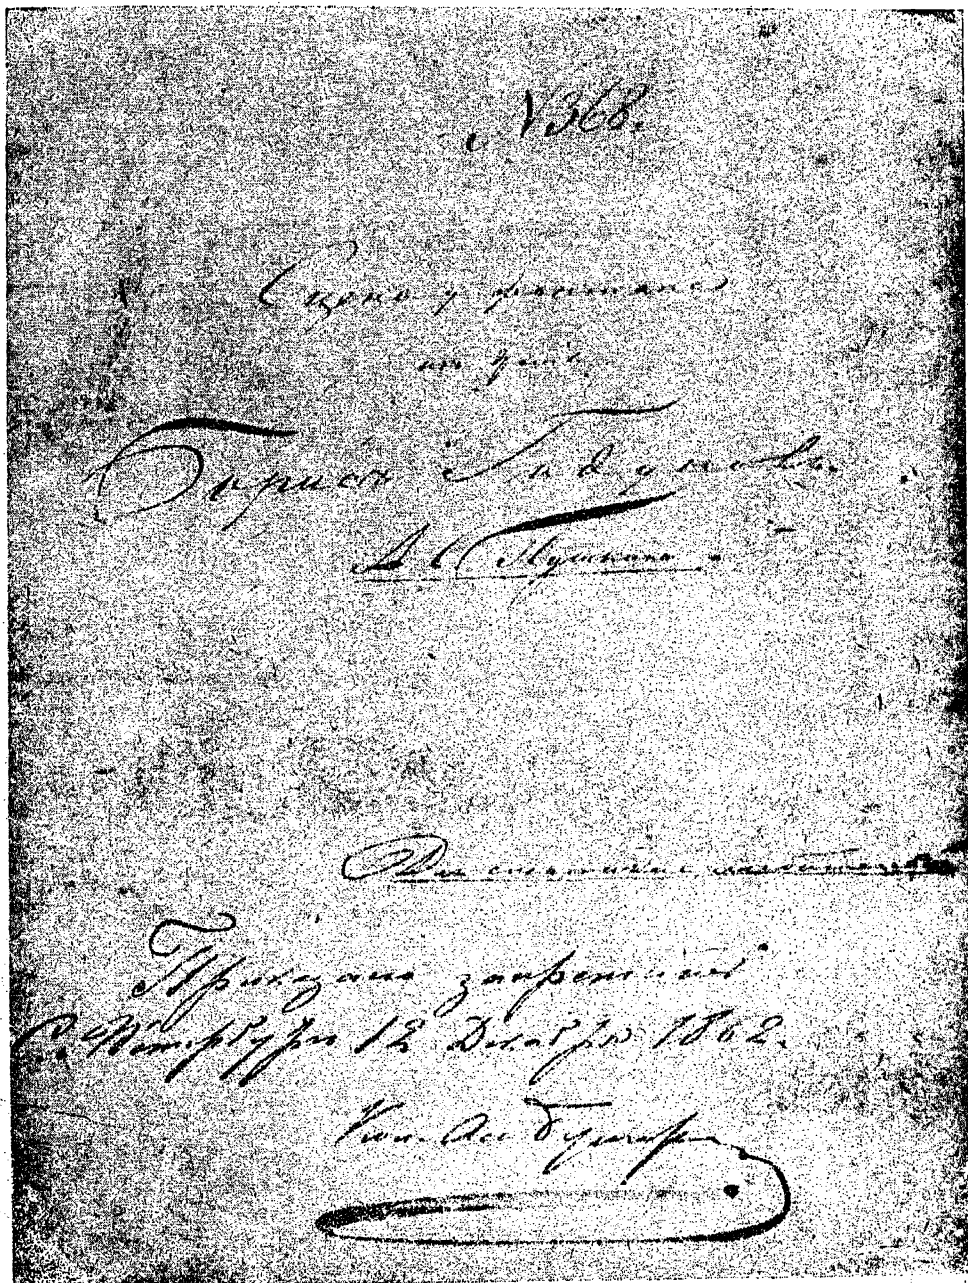 N 368.
Сцена у фонтана
из
Борисъ Годуновъ.
А С Пушкина
Для
Приказано запретить
С. Петербургъ 12 Декабря 1862.